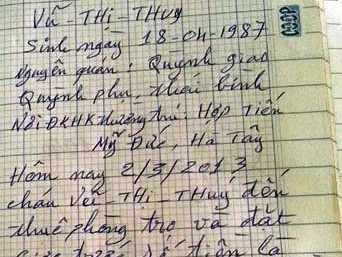 Vũ - Thị - Thuý
Sinh ngày 18-04-1987
Nguyên quán: Quỳnh giao
Quỳnh phụ, thái bình
Nơi ĐKHK thường trú: Hợp Tiến
Mỹ Đức, Hà Tây
Hôm nay 2/3/2013
cháu Vũ - Thị - Thuý đến
thuê phòng trọ và đặt
trước số tiền là